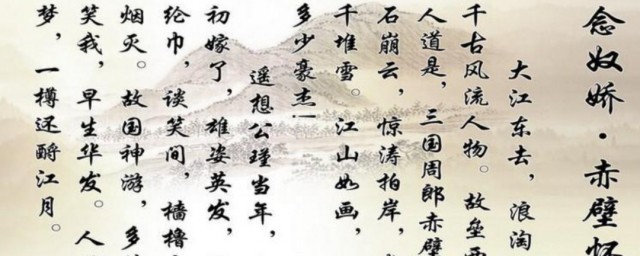 念奴娇·赤壁怀
大江东去，浪淘
千古风流人物。故垒西
人道是，三国周郎赤壁
石崩云，惊涛拍岸，
千堆雪。江山如画，
多少豪杰!
遥想公瑾当年，
初嫁了，雄姿英发，
纶巾，谈笑间，樯橹
烟灭。故国神游，多
笑我，早生华发。人
梦，一樽还酹江月。